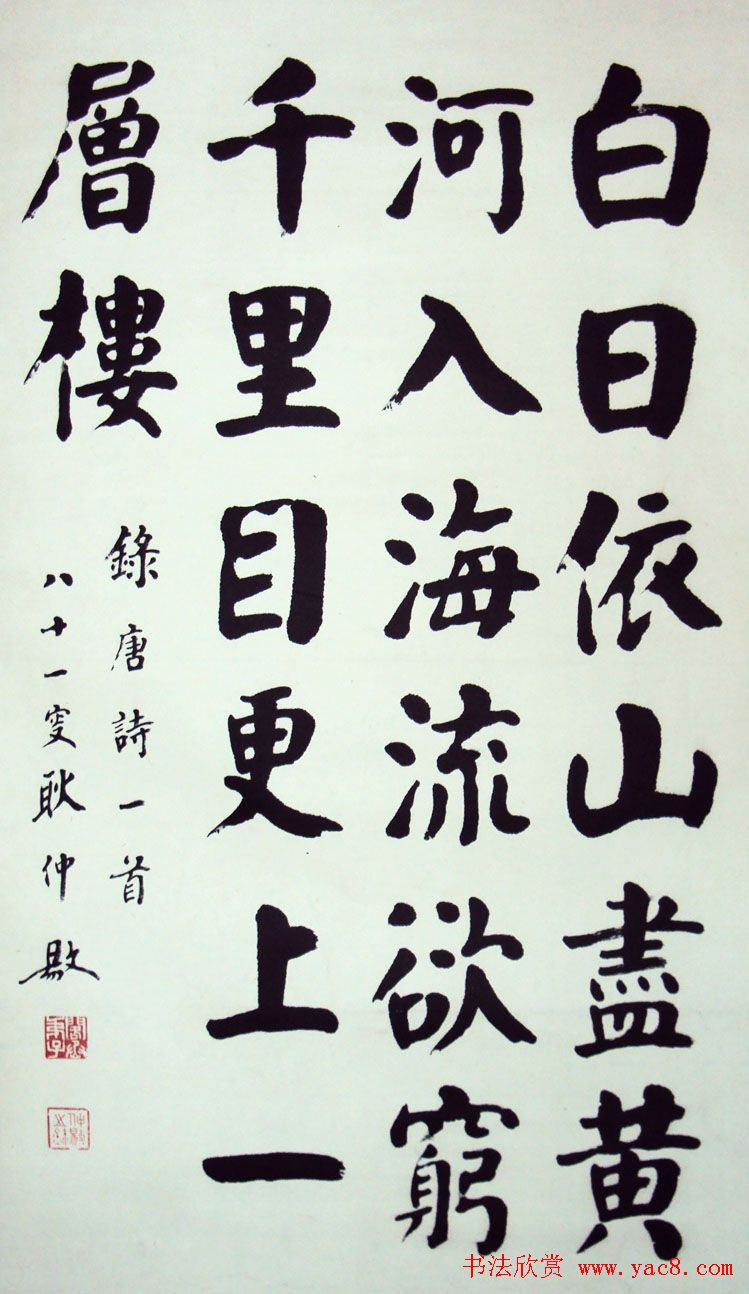 白日依山盡黄
河入海流欲窮
千里目更上一
層樓
錄唐詩一首
八十一叟耿仲敭
书法欣赏 www.yac8.com